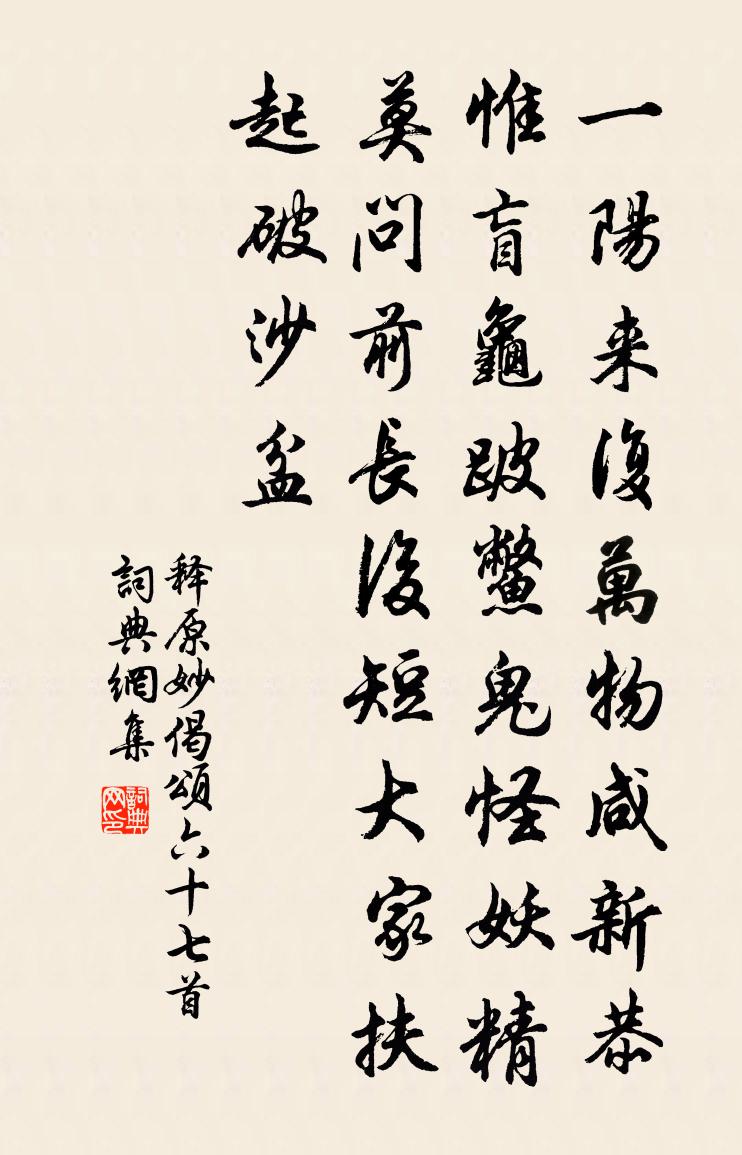 一陽来復萬物咸新恭
惟盲龜跛鱉鬼怪妖精
莫問前長後短大家扶
起破沙盆
释原妙偈頌六十七首
詞典網集
詞典网印